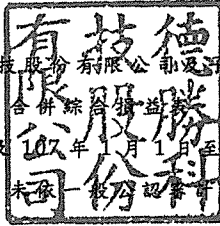 技股份有限公司及子
合併綜合損益表
及 107 年 1 月 1 日至
未依一般公認審計
德勝科
技股份
有限公司